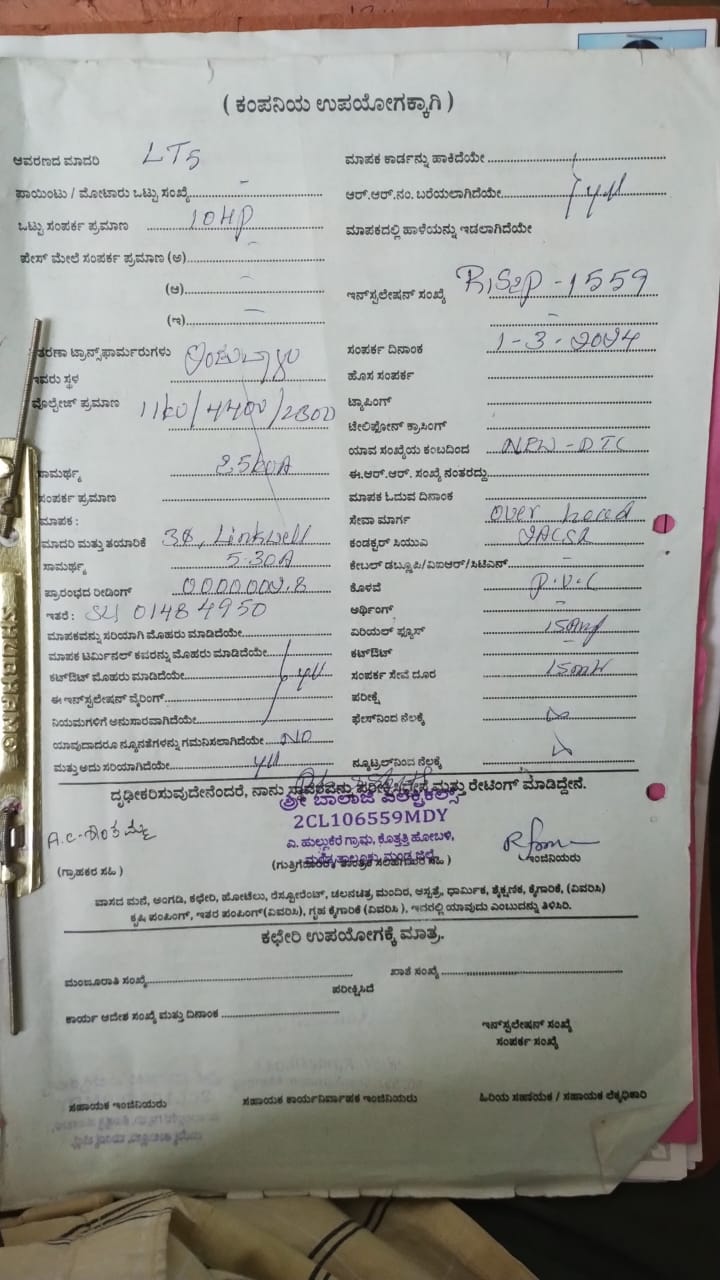 ( ಕಂಪನಿಯ ಉಪಯೋಗಕ್ಕಾಗಿ )
ಆವರಣದ ಮಾದರಿ LT5
ಪಾಯಿಂಟು / ಮೋಟಾರು ಒಟ್ಟು ಸಂಖ್ಯೆ -
ಒಟ್ಟು ಸಂಪರ್ಕ ಪ್ರಮಾಣ 10HP
ಫೇಸ್ ಮೇಲೆ ಸಂಪರ್ಕ ಪ್ರಮಾಣ (ಅ) -
(ಆ) -
(ಇ) -
ತರಣಾ ಟ್ರಾನ್ಸ್‌ಫಾರ್ಮರುಗಳು
ಇವರು ಸ್ಥಳ
ವೊಲ್ಟೇಜ್ ಪ್ರಮಾಣ 11kv/440v/230v
ಸಾಮರ್ಥ್ಯ 25kVA
ಸಂಪರ್ಕ ಪ್ರಮಾಣ
ಮಾಪಕ :
ಮಾದರಿ ಮತ್ತು ತಯಾರಿಕೆ 3Φ, Linkwell
ಸಾಮರ್ಥ್ಯ 5-30A
ಪ್ರಾರಂಭದ ರೀಡಿಂಗ್
ಇತರೆ : 01484950
ಮಾಪಕವನ್ನು ಸರಿಯಾಗಿ ಮೊಹರು ಮಾಡಿದೆಯೇ
ಮಾಪಕ ಟರ್ಮಿನಲ್ ಕವರನ್ನು ಮೊಹರು ಮಾಡಿದೆಯೇ
ಕಟ್‌ಔಟ್ ಮೊಹರು ಮಾಡಿದೆಯೇ
ಈ ಇನ್‌ಸ್ಟಲೇಷನ್ ವೈರಿಂಗ್
ನಿಯಮಗಳಿಗೆ ಅನುಸಾರವಾಗಿದೆಯೇ
ಯಾವುದಾದರೂ ನ್ಯೂನತೆಗಳನ್ನು ಗಮನಿಸಲಾಗಿದೆಯೇ NO
ಮತ್ತು ಅದು ಸರಿಯಾಗಿದೆಯೇ
ಮಾಪಕ ಕಾರ್ಡನ್ನು ಹಾಕಿದೆಯೇ
ಆರ್.ಆರ್.ನಂ. ಬರೆಯಲಾಗಿದೆಯೇ
ಮಾಪಕದಲ್ಲಿ ಹಾಳೆಯನ್ನು ಇಡಲಾಗಿದೆಯೇ
ಇನ್‌ಸ್ಟಲೇಷನ್ ಸಂಖ್ಯೆ -1559
ಸಂಪರ್ಕ ದಿನಾಂಕ 1-3-2024
ಹೊಸ ಸಂಪರ್ಕ
ಟ್ಯಾಪಿಂಗ್
ಟೇಲಿಫೋನ್ ಕ್ರಾಸಿಂಗ್
ಯಾವ ಸಂಖ್ಯೆಯ ಕಂಬದಿಂದ NEW-DTC
ಈ.ಆರ್.ಆರ್. ಸಂಖ್ಯೆ ನಂತರದ್ದು
ಮಾಪಕ ಓದುವ ದಿನಾಂಕ
ಸೇವಾ ಮಾರ್ಗ over head
ಕಂಡಕ್ಟರ್ ಸಿಯುಎ
ಕೇಬಲ್ ಡಬ್ಲ್ಯೂಪಿ/ವಿಐಆರ್/ಸಿಟಿಎನ್ -
ಕೊಳವೆ P.V.C
ಅರ್ಥಿಂಗ್ -
ಏರಿಯಲ್ ಫ್ಯೂಸ್
ಕಟ್‌ಔಟ್ -
ಸಂಪರ್ಕ ಸೇವೆ ದೂರ
ಪರೀಕ್ಷೆ
ಫೇಸ್‌ನಿಂದ ನೆಲಕ್ಕೆ
ನ್ಯೂಟ್ರಲ್‌ನಿಂದ ನೆಲಕ್ಕೆ
ದೃಢೀಕರಿಸುವುದೇನೆಂದರೆ, ನಾನು ಸ್ಥಾವರವನ್ನು ಪರೀಕ್ಷಿಸಿದ್ದೇನೆ ಮತ್ತು ರೇಟಿಂಗ್ ಮಾಡಿದ್ದೇನೆ.
ಶ್ರೀ ಬಾಲಾಜಿ ಎಲೆಕ್ಟ್ರಿಕಲ್ಸ್
2CL106559MDY
ಎ. ಹುಲ್ಲುಕೆರೆ ಗ್ರಾಮ, ಕೊತ್ತತ್ತಿ ಹೋಬಳಿ,
ಮಂಡ್ಯ ತಾಲ್ಲೂಕು, ಮಂಡ್ಯ ಜಿಲ್ಲೆ
(ಗ್ರಾಹಕರ ಸಹಿ )
ಇಂಜಿನಿಯರು
ವಾಸದ ಮನೆ, ಅಂಗಡಿ, ಕಛೇರಿ, ಹೋಟೆಲು, ರೆಸ್ಟೋರೆಂಟ್, ಚಲನಚಿತ್ರ ಮಂದಿರ, ಆಸ್ಪತ್ರೆ, ಧಾರ್ಮಿಕ, ಶೈಕ್ಷಣಿಕ, ಕೈಗಾರಿಕೆ, (ವಿವರಿಸಿ)
ಕೃಷಿ ಪಂಪಿಂಗ್, ಇತರ ಪಂಪಿಂಗ್(ವಿವರಿಸಿ), ಗೃಹ ಕೈಗಾರಿಕೆ (ವಿವರಿಸಿ ), ಇವರಲ್ಲಿ ಯಾವುದು ಎಂಬುದನ್ನು ತಿಳಿಸಿರಿ.
ಕಛೇರಿ ಉಪಯೋಗಕ್ಕೆ ಮಾತ್ರ.
ಮಂಜೂರಾತಿ ಸಂಖ್ಯೆ ಖಾತೆ ಸಂಖ್ಯೆ
ಪರೀಕ್ಷಿಸಿದೆ
ಕಾರ್ಯ ಆದೇಶ ಸಂಖ್ಯೆ ಮತ್ತು ದಿನಾಂಕ
ಇನ್‌ಸ್ಟಲೇಷನ್ ಸಂಖ್ಯೆ
ಸಂಪರ್ಕ ಸಂಖ್ಯೆ
ಸಹಾಯಕ ಇಂಜಿನಿಯರು ಸಹಾಯಕ ಕಾರ್ಯನಿರ್ವಾಹಕ ಇಂಜಿನಿಯರು ಹಿರಿಯ ಸಹಾಯಕ / ಸಹಾಯಕ ಲೆಕ್ಕಾಧಿಕಾರಿ